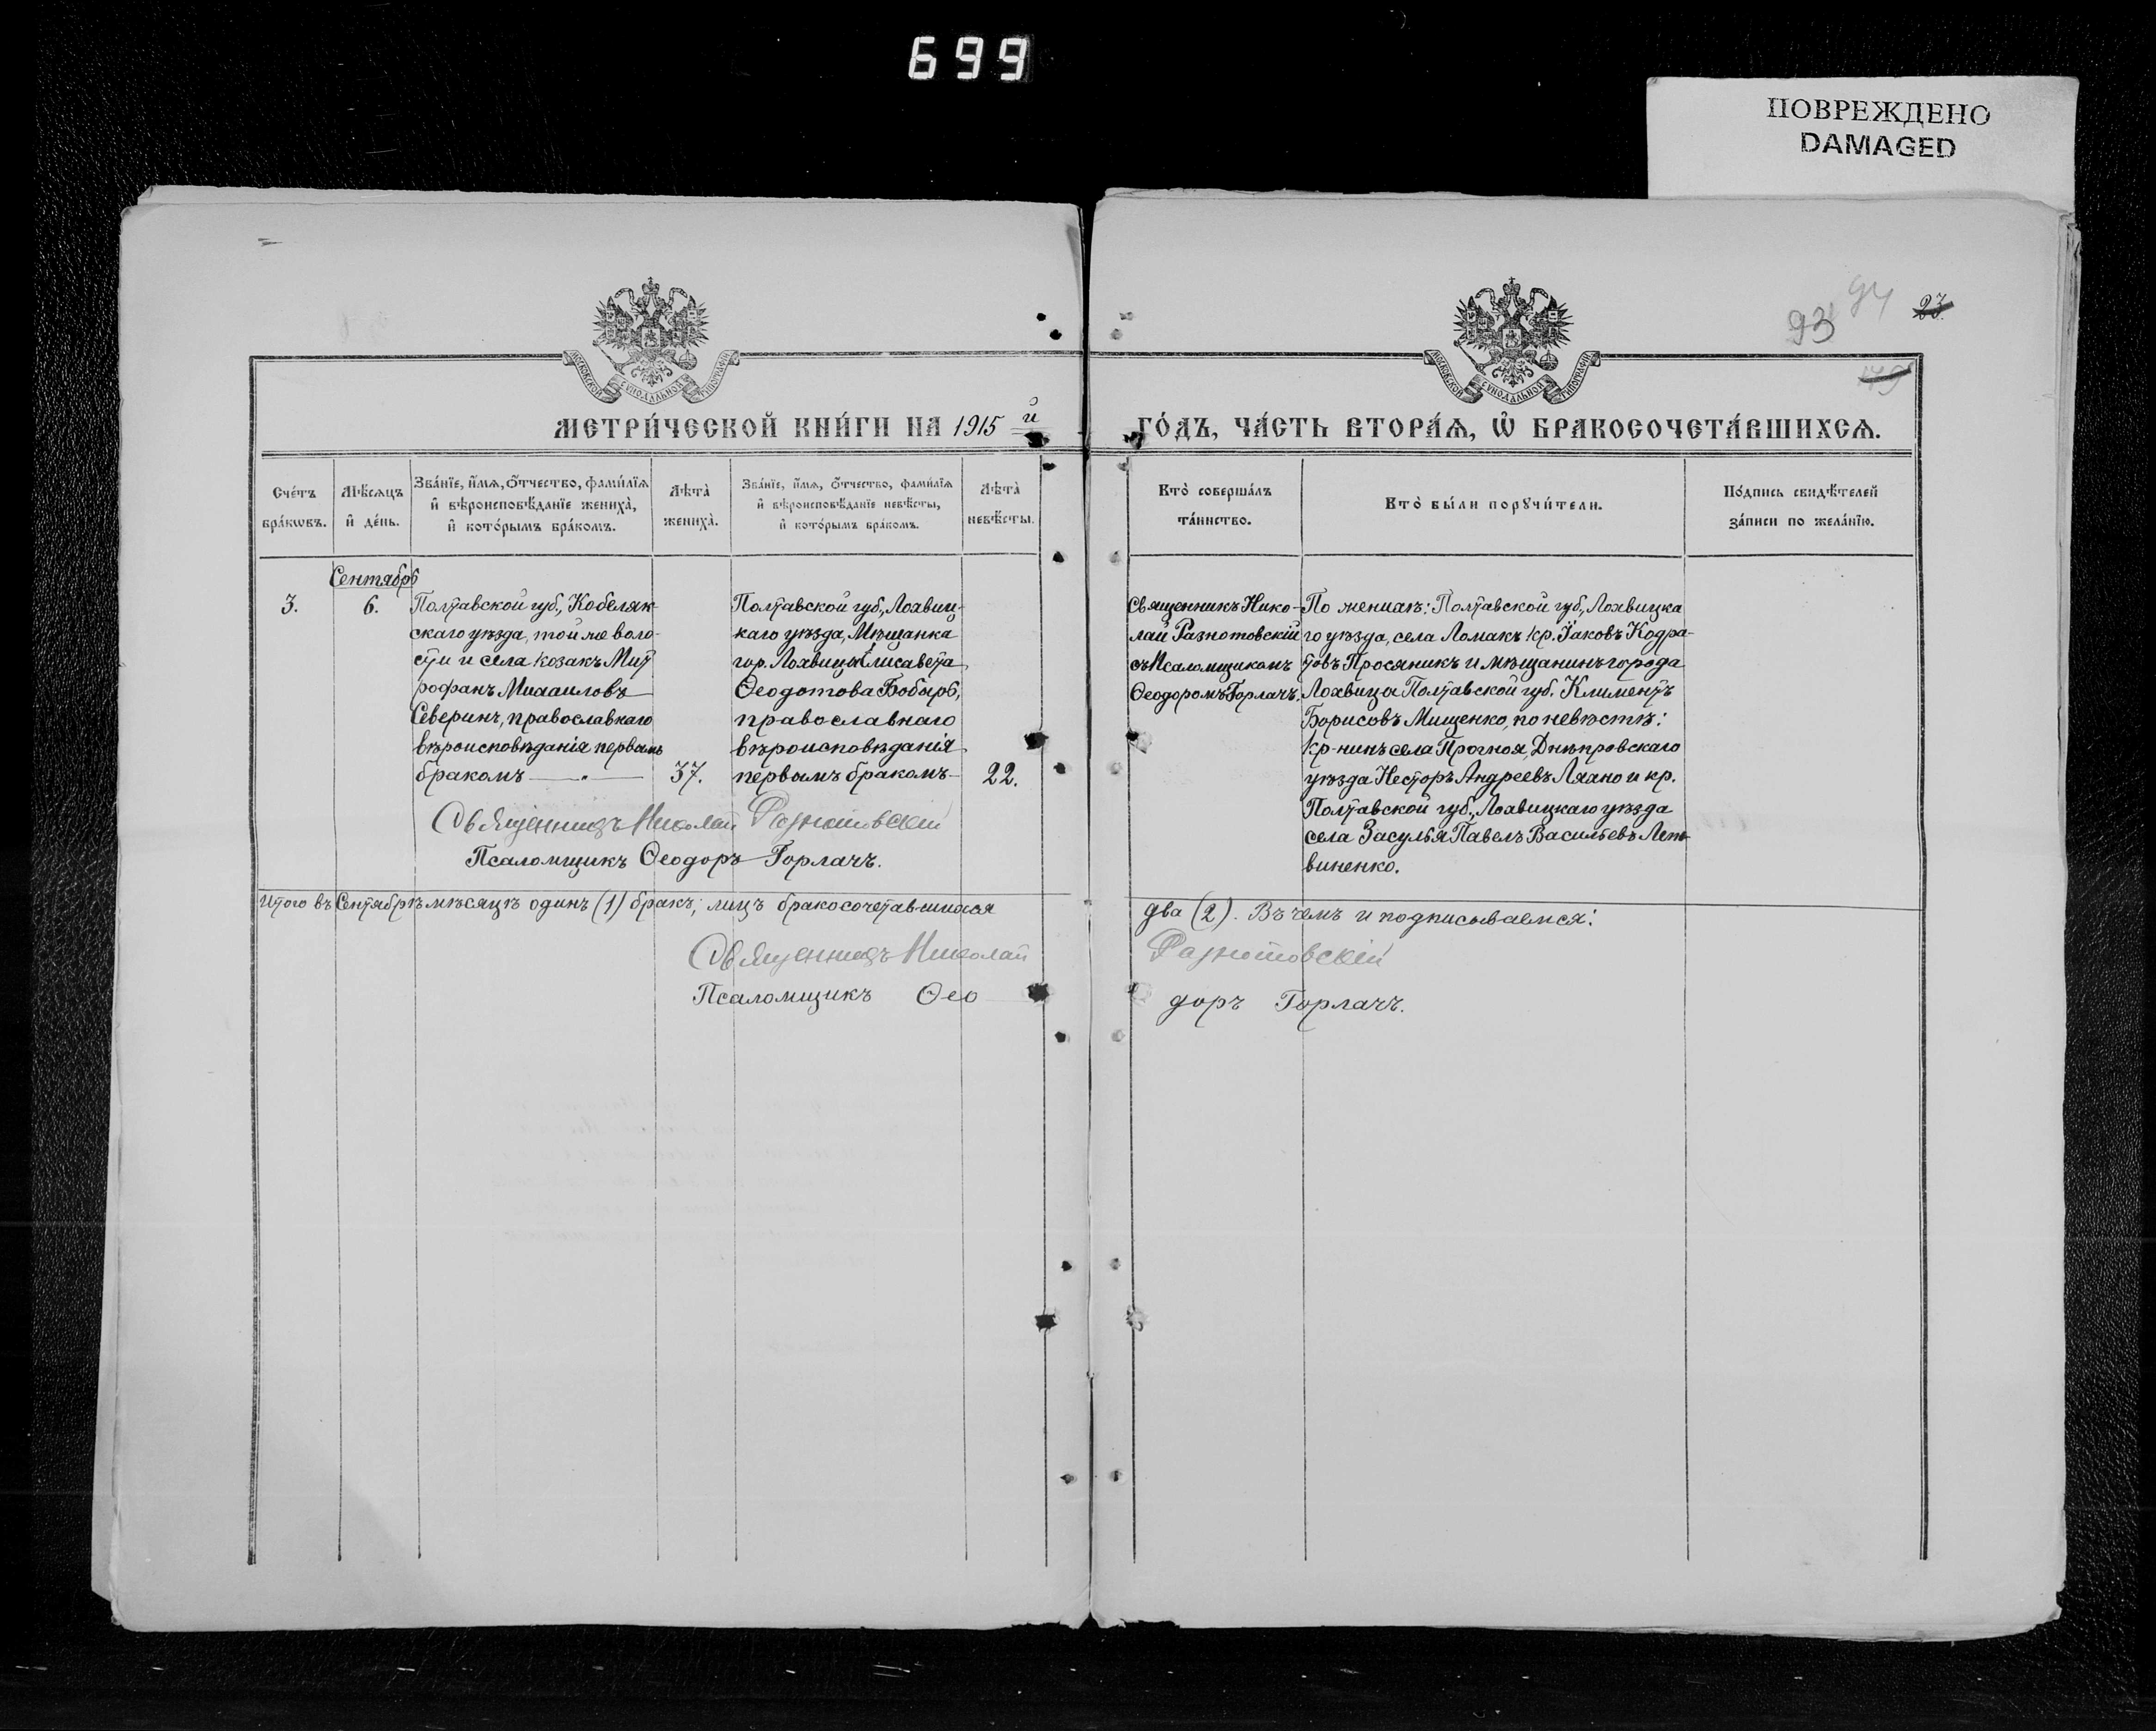 699
ПОВРЕЖДЕНО
DAMAGED
93 94 23.
МОСКОВСКОЙ СѴНОДАЛЬНОЙ ТИПОГРАФІИ
МОСКОВСКОЙ СѴНОДАЛЬНОЙ ТИПОГРАФІИ
МЕТРИ́ЧЕСКОЙ КНИ́ГИ НА 1915 й
ГО́ДЪ, ЧА́СТЬ ВТОРА́Ѧ, Ѡ҆ БРАКОСОЧЕТА́ВШИХСѦ.
Сче́тъ бра́кѡвъ.
Мѣ́сѧцъ и҆ де́нь.
Зва́нїе, и҆́мѧ, ѻ҆́тчество, фамі́лїѧ и҆ вѣроисповѣ́данїе жениха̀, и҆ кото́рымъ бра́комъ.
Лѣта̀ жениха̀.
Зва́нїе, и҆́мѧ, ѻ҆́тчество, фамі́лїѧ и҆ вѣроисповѣ́данїе невѣ́сты, и҆ кото́рымъ бра́комъ.
Лѣта̀ невѣ́сты.
Кто̀ соверша́лъ та́инство.
Кто̀ бы́ли порꙋчи́тели.
По́дпись свидѣ́телей за́писи по жела́нїю.
Сентябрь
3.
6.
Полтавской губ., Кобеляк-
скаго уѣзда, той же воло-
сти и села козакъ Мит
рофанъ Михаиловъ
Северинъ, православнаго
вѣроисповѣданія первымъ
бракомъ
37.
Полтавской губ., Лохвиц-
каго уѣзда, Мѣщанка
гор. Лохвицы Елисавета
Ѳеодотова Бобырь,
православнаго
вѣроисповѣданія
первымъ бракомъ
22.
Священникъ Нико-
лай Разнотовскій
съ Псаломщикомъ
Ѳеодоромъ Горлачъ.
По женихѣ: Полтавской губ., Лохвицка
го уѣзда, села Ломакъ кр. Іаковъ Кодра-
товъ Просяникъ и мѣщанинъ города
Лохвица Полтавской губ. Климентъ
Борисовъ Мищенко, по невѣстѣ:
кр-нинъ села Прогноя, Днѣпровскаго
уѣзда Несторъ Андреевъ Ляхно и кр.
Полтавской губ., Лохвицкаго уѣзда
села Засулья Павелъ Васильевъ Лет-
виненко.
Священникъ Николай Разнотовскій
Псаломщикъ Ѳеодоръ Горлачъ.
Итого въ Сентябрѣ мѣсяцѣ одинъ (1) бракъ; лицъ бракосочетавшихся
два (2). Въ чемъ и подписываемся:
Священникъ Николай
Разнотовскій
Псаломщикъ Ѳео
доръ Горлачъ.